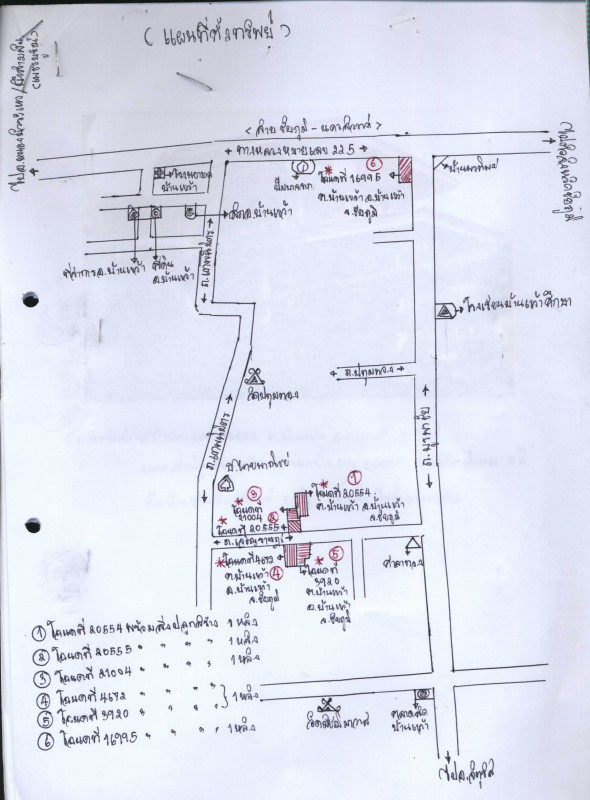 ( แผนที่ตั้งทรัพย์ )
< สาย ชัยภูมิ - นครสวรรค์ >
ทางหลวงหมายเลข 225
ไป จ.หนองบัวระเหว/
(เพชรบูรณ์)
ไปตัวจังหวัดชัยภูมิ
โรงพยาบาล
บ้านเขว้า
สภ.อ.บ้านเขว้า
ที่ว่าการ อ.บ้านเขว้า
ที่ดิน
อ.บ้านเขว้า
ปั๊ม ปตท.
⑥
* โฉนดที่ 16995
ต.บ้านเขว้า อ.บ้านเขว้า
จ.ชัยภูมิ
โรงเรียนบ้านเขว้าศึกษา
วัดปทุมทอง
ถ.ปทุมทอง
①
* โฉนดที่ 20554
ต.บ้านเขว้า อ.บ้านเขว้า
จ.ชัยภูมิ
③
* โฉนดที่
21004
②
* โฉนดที่ 20555
* โฉนดที่ 4692
ต.บ้านเขว้า ④
อ.บ้านเขว้า
จ.ชัยภูมิ
* ⑤
โฉนดที่
3920
ต.บ้านเขว้า
อ.บ้านเขว้า
จ.ชัยภูมิ
ศาลากลาง
① โฉนดที่ 20554 พร้อมสิ่งปลูกสร้าง 1 หลัง
② โฉนดที่ 20555 " " " 1 หลัง
③ โฉนดที่ 21004 " " " 1 หลัง
④ โฉนดที่ 4692 " " "
⑤ โฉนดที่ 3920 " " " } 1 หลัง
⑥ โฉนดที่ 16995 " " " 1 หลัง
ตลาดสด
บ้านเขว้า
ไป อ.จัตุรัส